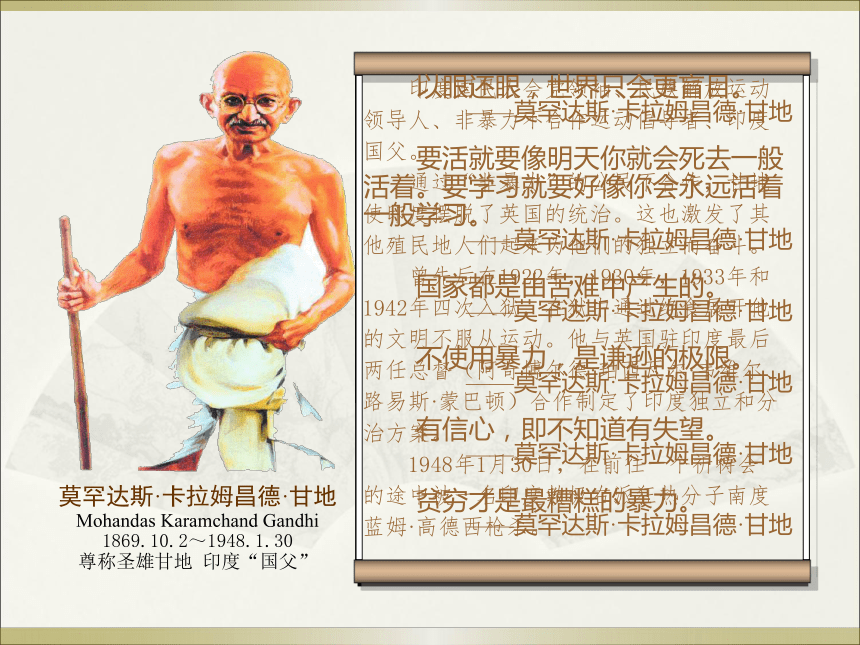 以眼还眼，世界只会更盲目。
——莫罕达斯·卡拉姆昌德·甘地
要活就要像明天你就会死去一般
活着。要学习就要好像你会永远活着
一般学习。
——莫罕达斯·卡拉姆昌德·甘地
国家都是由苦难中产生的。
——莫罕达斯·卡拉姆昌德·甘地
不使用暴力，是谦逊的极限。
——莫罕达斯·卡拉姆昌德·甘地
有信心，即不知道有失望。
——莫罕达斯·卡拉姆昌德·甘地
贫穷才是最糟糕的暴力。
——莫罕达斯·卡拉姆昌德·甘地
印度 运动
领导人、非暴力不合作运动倡导者、印度
国父。
通过
使 摆脱了英国的统治。这也激发了其
他殖民地人们起来为他们的独立而奋斗。
曾先后在1922年、1930年、1933年和
1942年四次入狱 通过
的文明不服从运动。他与英国驻印度最后
两任总督（阿奇博尔德
路易斯·蒙巴顿）合作制定了印度独立和分
治方案
1948年1月30日，在前往一个祈祷会
的途中 分子南度
蓝姆·高德西枪杀
莫罕达斯·卡拉姆昌德·甘地
Mohandas Karamchand Gandhi
1869.10.2～1948.1.30
尊称圣雄甘地 印度“国父”